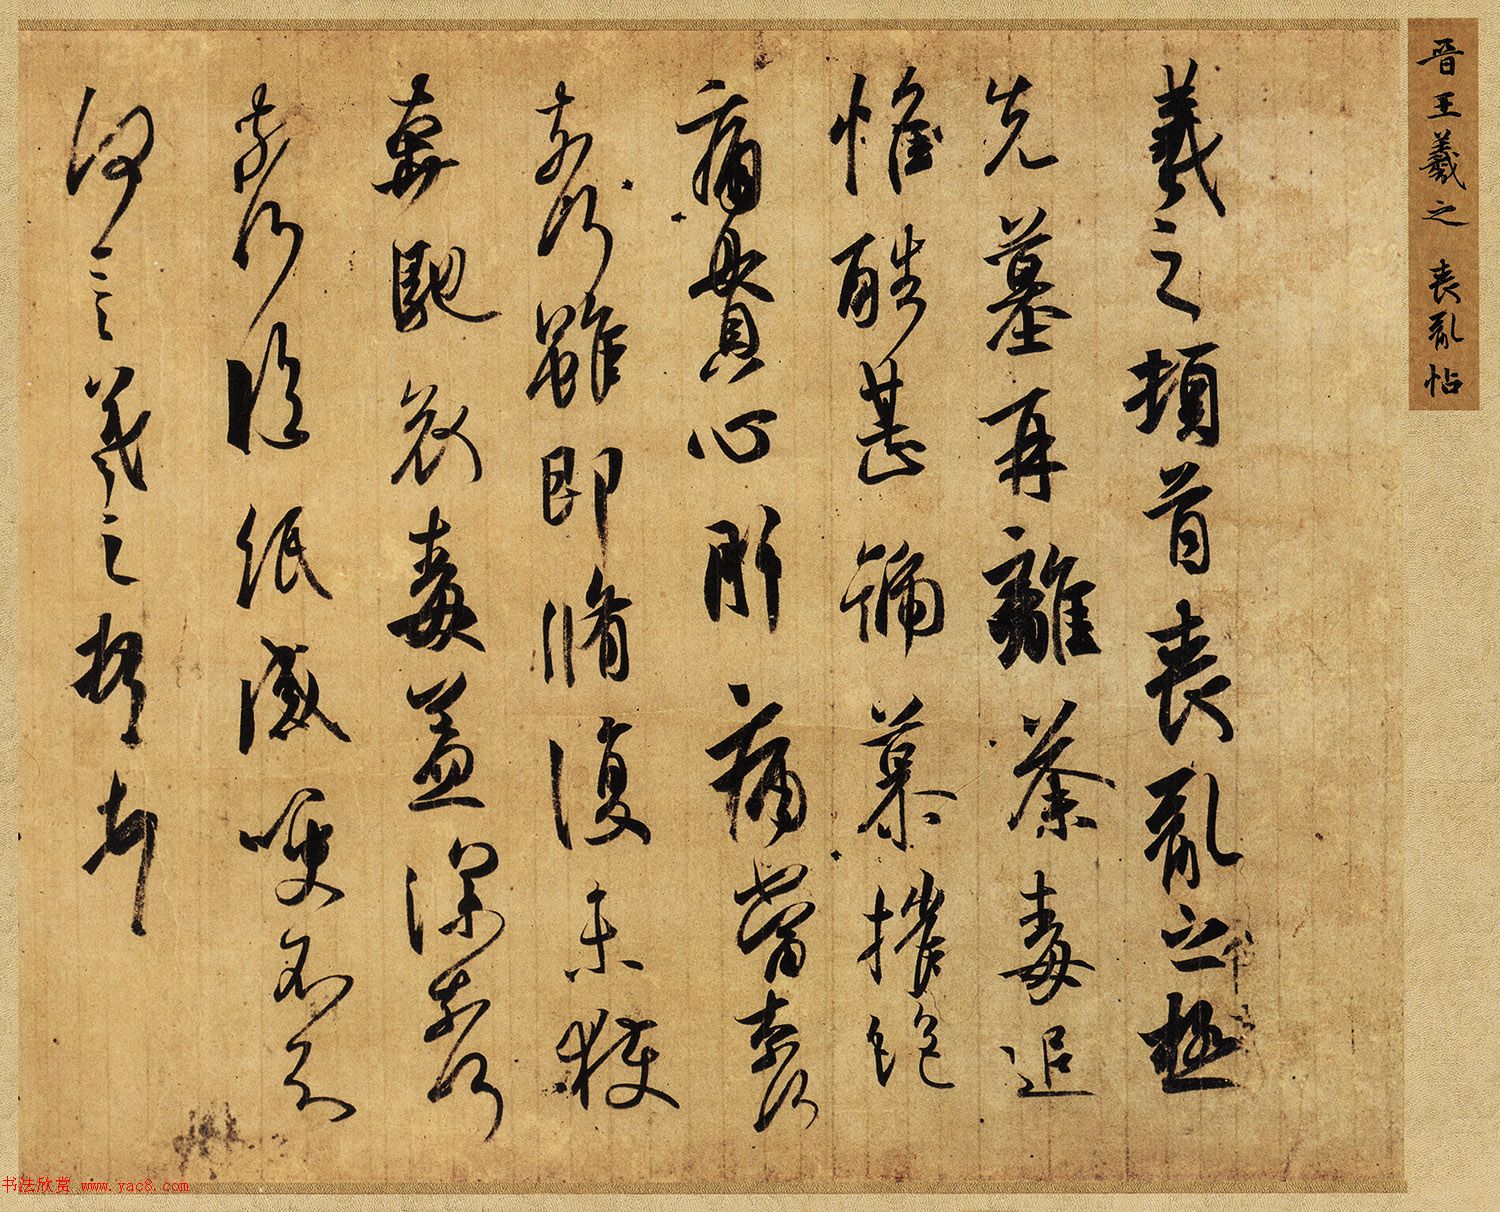 晋王羲之 丧乱帖
羲之頓首喪亂之極
先墓再離荼毒追
惟酷甚號慕摧絶
痛貫心肝痛當奈何
奈何雖即脩復未獲
奔馳哀毒益深奈何
奈何臨紙感哽不知
何言羲之頓首頓首
书法欣赏 www.yac8.com